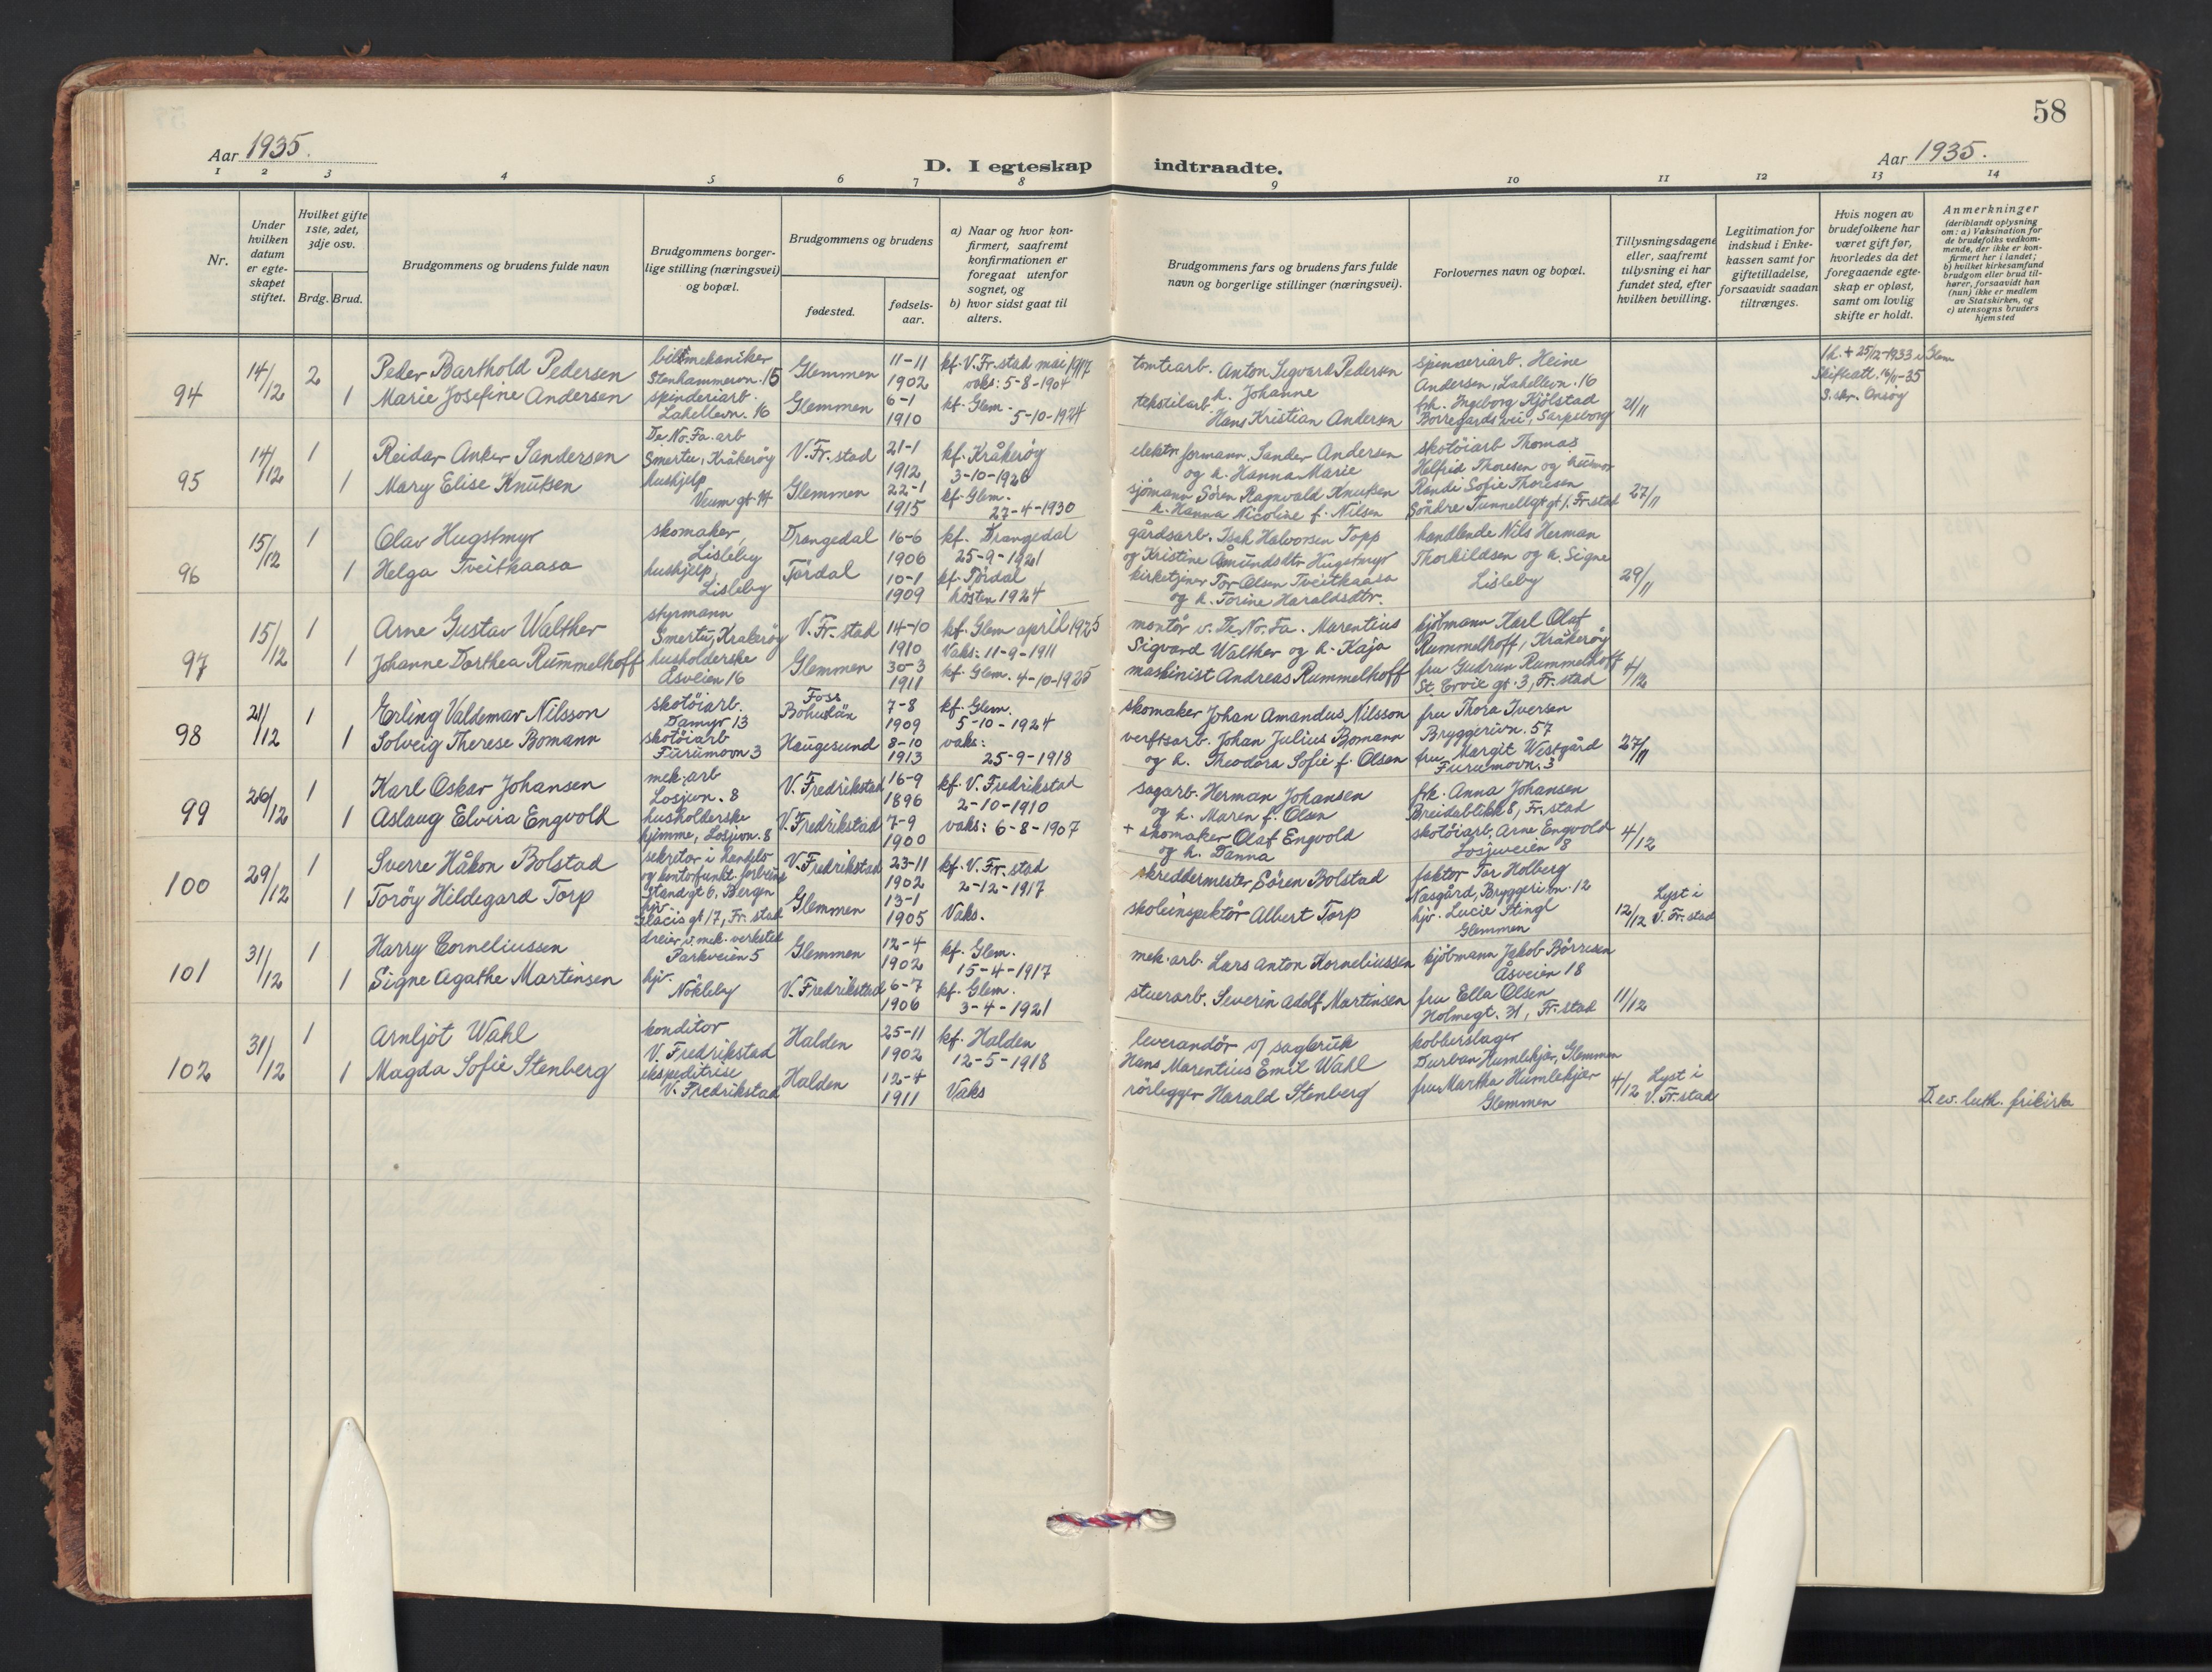 58
Aar 1935.
D. I egteskap indtraadte.
Aar 1935.
1 2 3 4 5 6 7 8 9 10 11 12 13 14
Nr.
Under
hvilken
datum
er egte-
skapet
stiftet.
Hvilket gifte
1ste, 2det,
3dje osv.
Brdg. Brud.
Brudgommens og brudens fulde navn
Brudgommens borger-
lige stilling (næringsvei)
og bopæl.
Brudgommens og brudens
fødested.
fødsels-
aar.
a) Naar og hvor kon-
firmert, saafremt
konfirmationen er
foregaat utenfor
sognet, og
b) hvor sidst gaat til
alters.
Brudgommens fars og brudens fars fulde
navn og borgerlige stillinger (næringsvei).
Forlovernes navn og bopæl.
Tillysningsdagene
eller, saafremt
tillysning ei har
fundet sted, efter
hvilken bevilling.
Legitimation for
indskud i Enke-
kassen samt for
giftetilladelse,
forsaavidt saadan
tiltrænges.
Hvis nogen av
brudefolkene har
været gift før,
hvorledes da det
foregaaende egte-
skap er opløst,
samt om lovlig
skifte er holdt.
Anmerkninger
(deriblandt oplysning
om: a) Vaksination for
de brudefolks vedkom-
mende, der ikke er kon-
firmert her i landet;
b) hvilket kirkesamfund
brudgom eller brud til-
hører, forsaavidt han
(hun) ikke er medlem
av Statskirken, og
c) utensogns bruders
hjemsted
94
14/12
2
1
Peder Barthold Pedersen
Marie Josefine Andersen
bilmekaniker
Stenhammervn. 15
spinderiarb.
Lahellevn. 16
Glemmen
Glemmen
11-11
1902
6-1
1910
kf. V. Fr.stad mai 1917
vaks: 5-8-1904
kf. Glem.
5-10-1924
tomtearb. Anton Sigvard Pedersen
h. Johanne
tekstilarb.
Hans Kristian Andersen
spinneriarb. Heine
Andersen, Lahellevn. 16
frk. Ingeborg Kjölstad
Borregaards vei, Sarpsborg
21/11
+ 25/12-1933 i Glem
Skifteatt. 16/11-35
S. skr. Onsøy
95
14/12
1
1
Reidar Anker Sandersen
Mary Elise Knutsen
De No. Fa. arb
Smertu, Kråkerøy
hushjelp
Veum gt 14
V. Fr. stad
Glemmen
21-1
1912
22-1
1915
kf. Kråkerøy
3-10-1926
kf. Glem.
27-4-1930
elektr. formann Sander Andersen
og h. Hanna Marie
sjömann Sören Ragnvald Knutsen
h. Hanna Nicoline f. Nilsen
skotöiarb Thomas
Helfrid Thoresen og hustru
Randi Sofie Thoresen
Söndre Tunnellbgt gt 1. Fr.stad
27/11
96
15/12
1
1
Olav Hugstmyr
Helga Tveitkaasa
skomaker,
Lisleby
hushjelp,
Lisleby
Drangedal
Tørdal
16-6
1906
10-1
1909
kf. Drangedal
25-9-1921
kf. Tördal
hösten 1924
gårdsarb. Isak Halvorsen Topp
og Kristine Åmundsdtr Hugstmyr
kirketjener Tor Olsen Tveitkaasa
og h. Torine Haraldsdtr.
handlende Nils Herman
Thorkildsen og h. Signe
Lisleby
29/11
97
15/12
1
1
Arne Gustav Walther
Johanne Dorthea Rummelhoff
styrmann
Smertu, Krakerøy
husholderske
Åsveien 16
V. Fr. stad
Glemmen
14-10
1910
30-3
1911
kf. Glem april 1925
Vaks: 11-9-1911
kf. Glem. 4-10-1925
montör v. De No. Fa. Marentius
Sigvard Walther og h. Kaja
maskinist Andreas Rummelhoff
kjöbmann Karl Olaf
Rummelhoff, Kråkerøy
fru Gudrun Rummelhoff
St. Croix gt. 3, Fr. stad
4/12
98
21/12
1
1
Erling Valdemar Nilsson
Solveig Therese Bomann
skotöiarb.
Damyr 13
skotöiarb
Furumovn 3
Foss
Bohuslän
Haugesund
7-8
1909
8-10
1913
kf. Glem.
5-10-1924
vaks:
25-9-1918
skomaker Johan Amandus Nilsson
verftsarb. Johan Julius Bomann
og h. Theodora Sofie f. Olsen
fru Thora Iversen
Bryggerivn. 57
fru Margit Westgård
Furumovn. 3
27/11
99
26/12
1
1
Karl Oskar Johansen
Aslaug Elvira Engvold
mek. arb
Losjevn. 8
husholderske
hjemme, Losjevn. 8
V. Fredrikstad
V. Fredrikstad
16-9
1896
7-9
1900
kf. V. Fredrikstad
2-10-1910
vaks: 6-8-1907
sagarb. Herman Johansen
og h. Maren f. Olsen
+ skomaker Olaf Engvold
og h. Danna
frk. Anna Johansen
Breidablikk 8, Fr. stad
skotöiarb. Arne Engvold
Losjeveien 8
4/12
100
29/12
1
1
Sverre Håkon Bolstad
Toröy Hildegard Torp
sekretær i handels-
og kontorfunkt. forbund
Strandgt 6, Bergen
hjv.
Glacis gt 17, Fr. stad
V. Fredrikstad
Glemmen
23-11
1902
13-1
1905
kf. V. Fr. stad
2-12-1917
Vaks.
skreddermester Sören Bolstad
skoleinspektör Albert Torp
faktor Tor Holberg
Næsgård, Bryggerivn. 12
hjv. Lucie Stingl
Glemmen
12/12
Lyst i
V. Fr. stad
101
31/12
1
1
Harry Corneliussen
Signe Agathe Martinsen
dreier v. mek. verksted
Parkveien 5
hjv.
Nökleby
Glemmen
V. Fredrikstad
12-4
1902
6-7
1906
kf. Glem.
15-4-1917
kf. Glem.
3-4-1921
mek. arb. Lars Anton Korneliussen
stuerarb. Severin Adolf Martinsen
kjöbmann Jakob Börresen
Åsveien 18
fru Ella Olsen
Holmegt. 31, Fr. stad
11/12
102
31/12
1
1
Arnljot Wahl
Magda Sofie Stenberg
konditor
V. Fredrikstad
ekspeditrise
V. Fredrikstad
Halden
Halden
25-11
1902
12-4
1911
kf. Halden
12-5-1918
Vaks
leverandör v/ sagbruk
Hans Marentius Emil Wahl
rörlegger Harald Stenberg
kobberslager
Durban Humlekjær, Glemmen
fru Martha Humlekjær
Glemmen
4/12
Lyst i
V. Fr. stad
D. ev. luth. frikirke